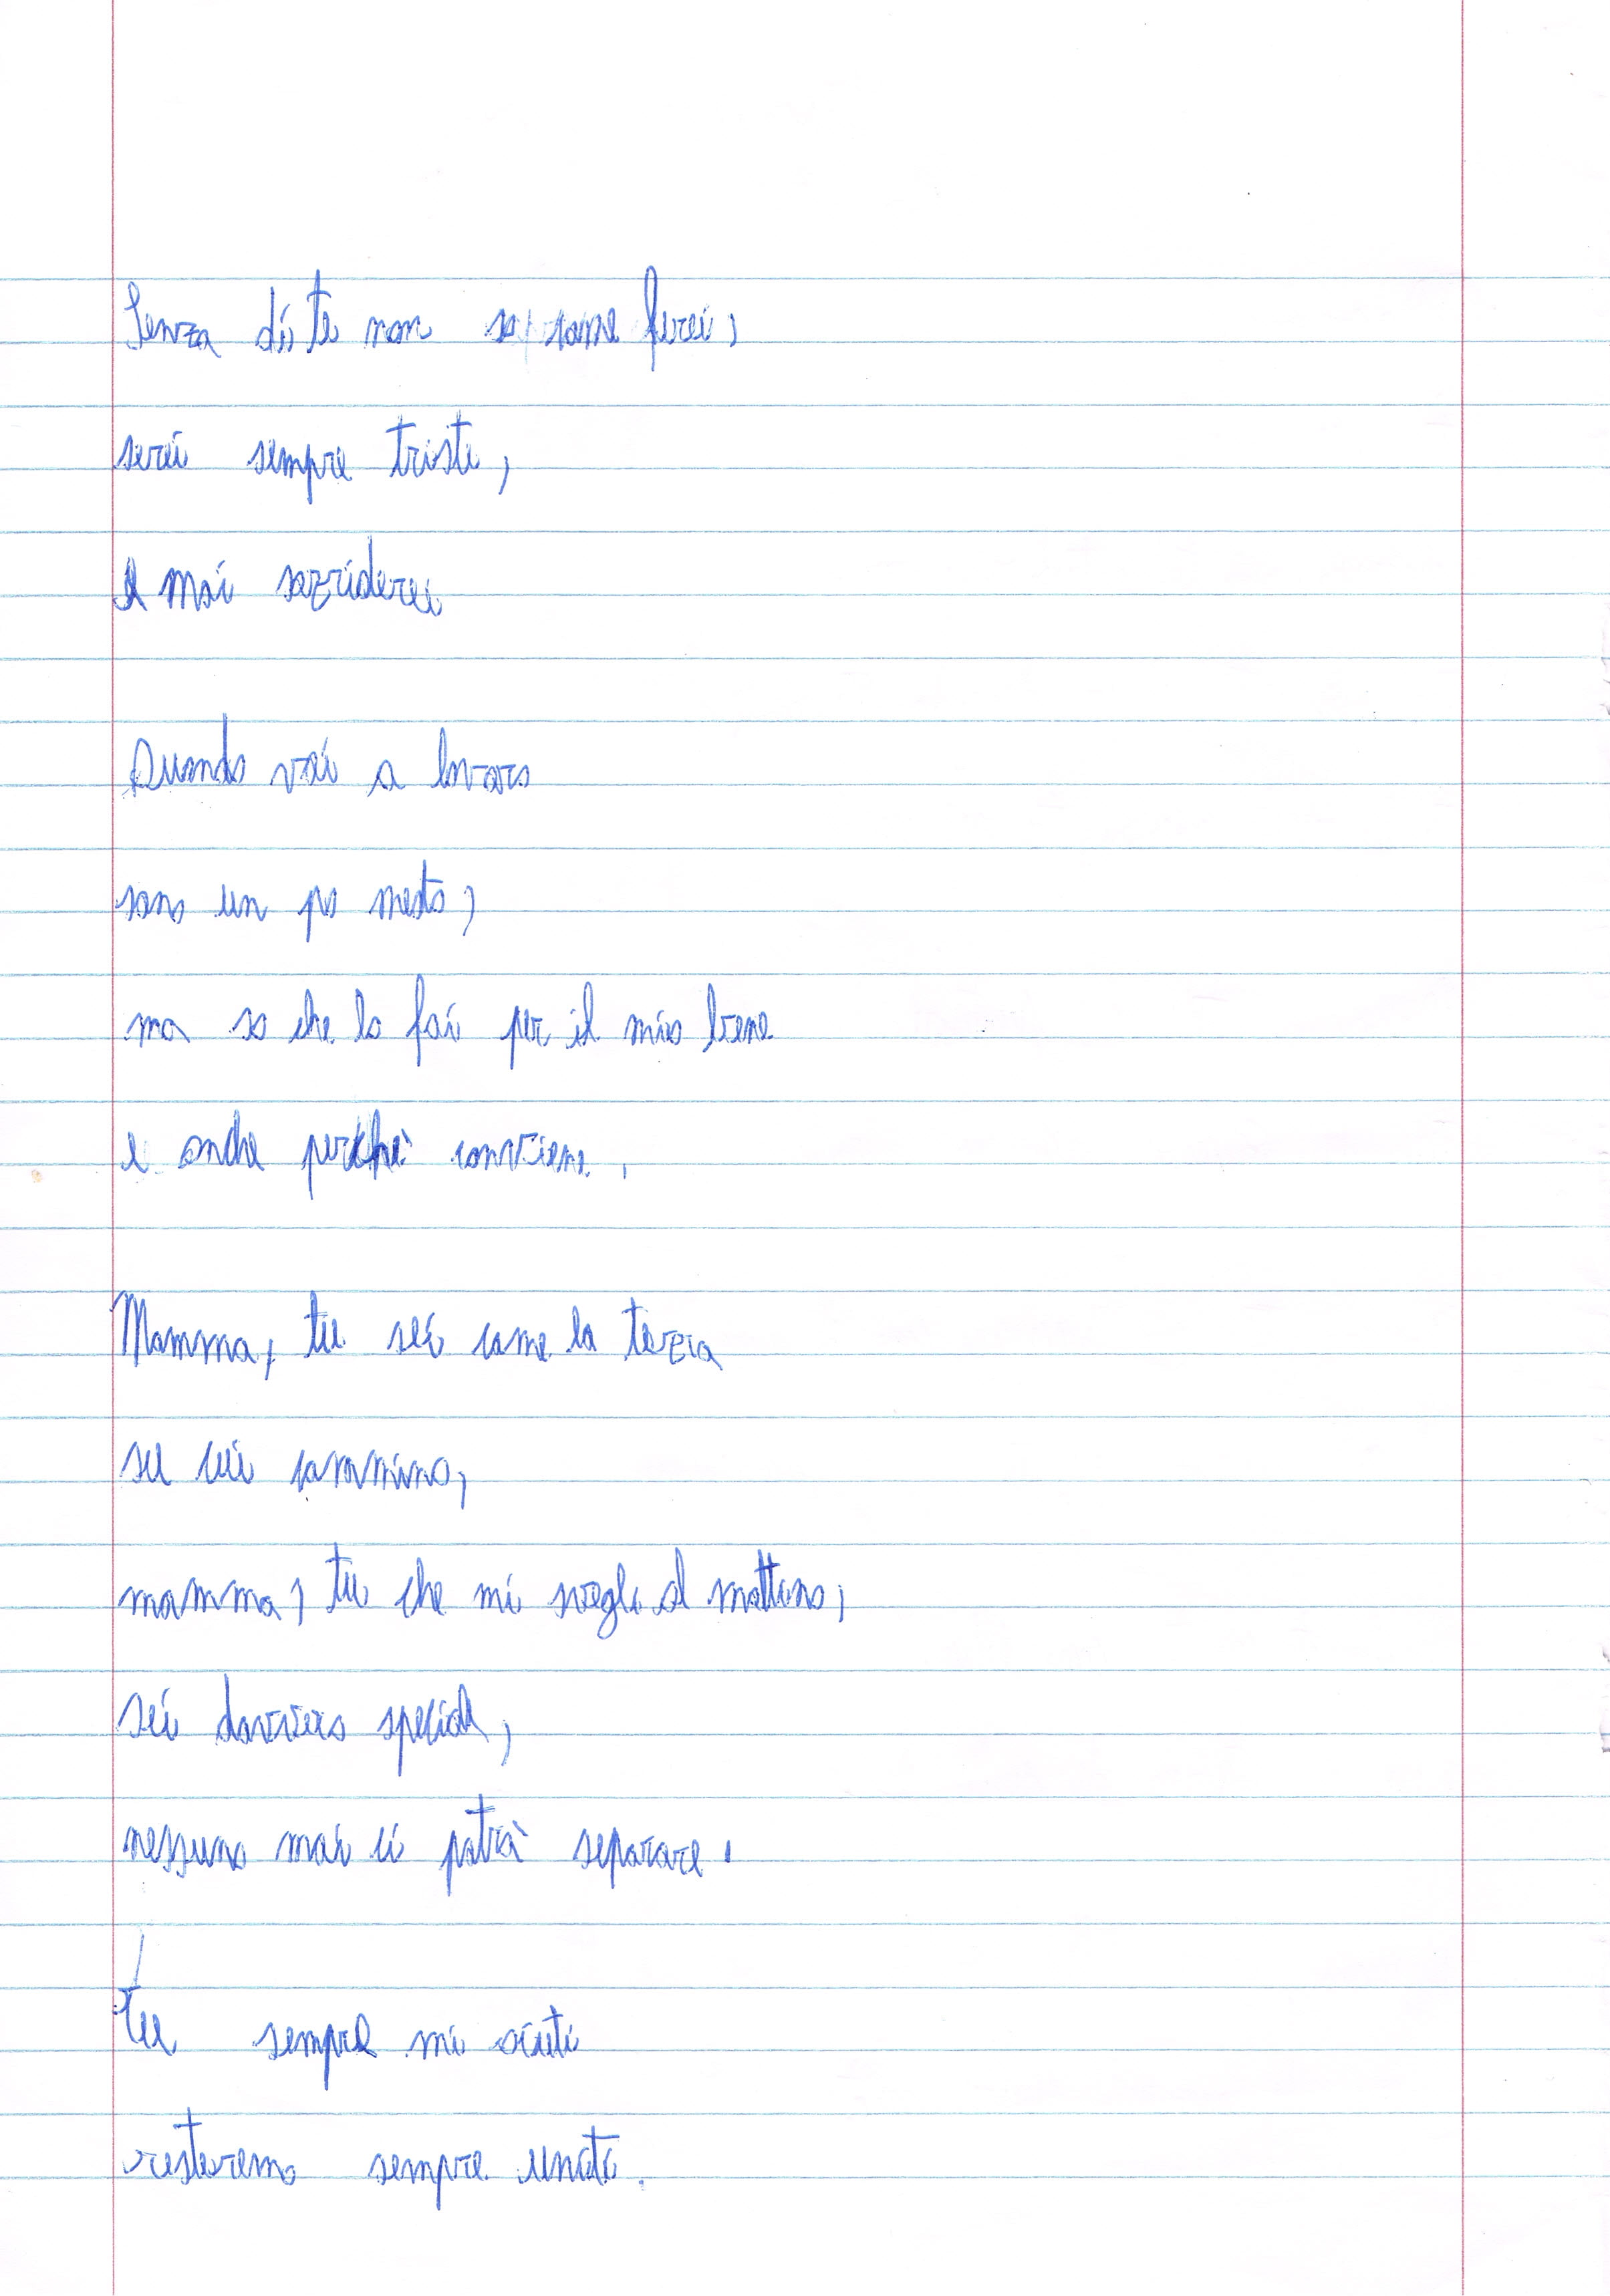 Senza di te non so come farei,
serei sempre triste,
e mai sorriderei
Quando vai a lavoro
sono un po mesto,
ma so che lo fai per il mio bene
e anche perchè conviene.
Mamma, tu sei come la terra
su cui cammino,
mamma, tu che mi svegli al mattino,
sei davvero speciale,
nessuno mai ci potrà separare.
Tu sempre mi aiuti
resteremo sempre uniti.